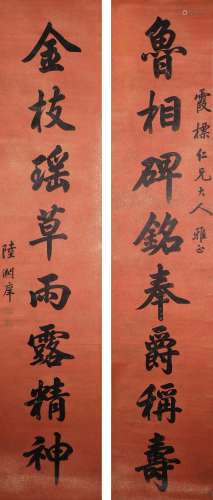 霞標仁兄大人雅正
魯相碑銘奉爵稱壽
金枝瑤草雨露精神
陸潤庠